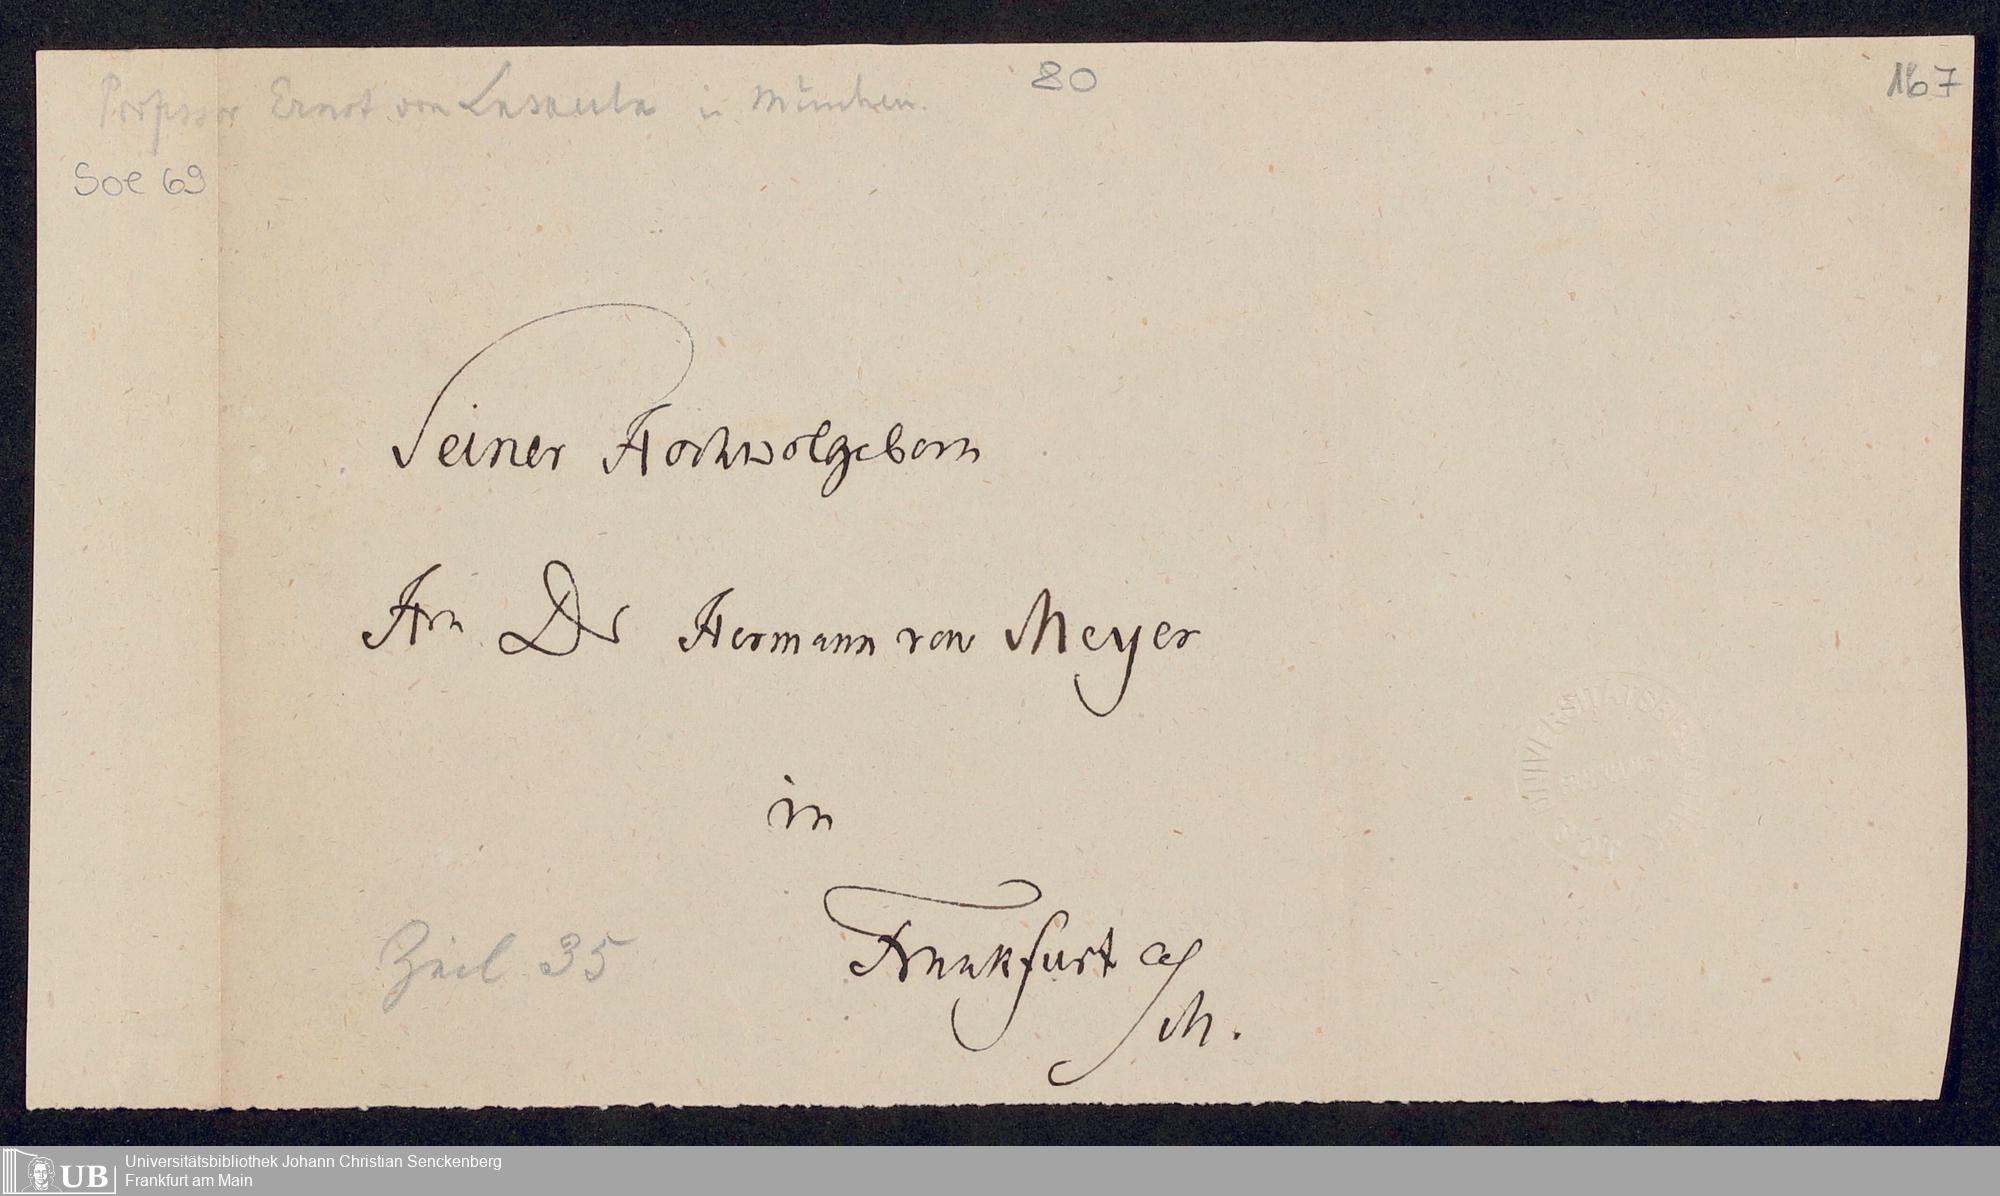 Professor Ernst von Lasaulx in München.
80
167
Soe 69
Seiner Hochwolgeborn
Hrn Dr Hermann von Meyer
in
Zeil 35
Frankfurt a/M.
UNIVERSITÄTSBIBLIOTHEK
UB
Universitätsbibliothek Johann Christian Senckenberg
Frankfurt am Main